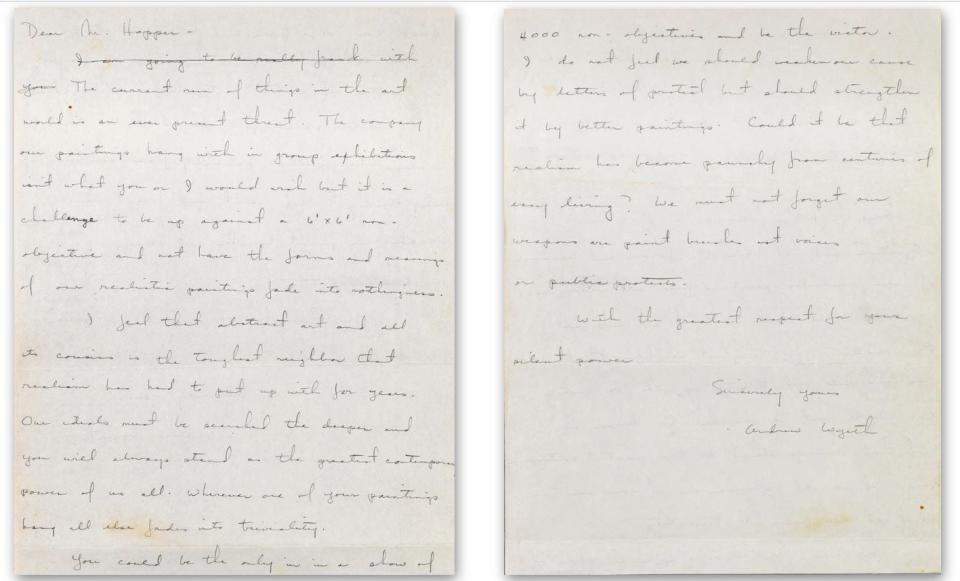 Dear Mr. Hopper -
I am going to be really frank with
you. The current run of things in the art
world is an ever present threat. The company
our paintings hang with in group exhibitions
isn't what you or I would wish but it is a
challenge to be up against a 6'x6' non-
objective and not have the forms and meanings
of our realistic paintings fade into nothingness.
I feel that abstract art and all
its cousins is the toughest neighbor that
realism has had to put up with for years.
Our ideals must be searched the deeper and
you will always stand as the greatest contemporary
power of us all. Wherever one of your paintings
hang all else fades into triviality.
You could be the only in in a show of
4000 non-objectives and be the victor.
I do not feel we should weaken our cause
by letters of protest but should strengthen
it by better paintings. Could it be that
realism has become paunchy from centuries of
easy living? We must not forget our
weapons are paint brushes not voices
or public protests.
With the greatest respect for your
silent power
Sincerely yours
Andrew Wyeth